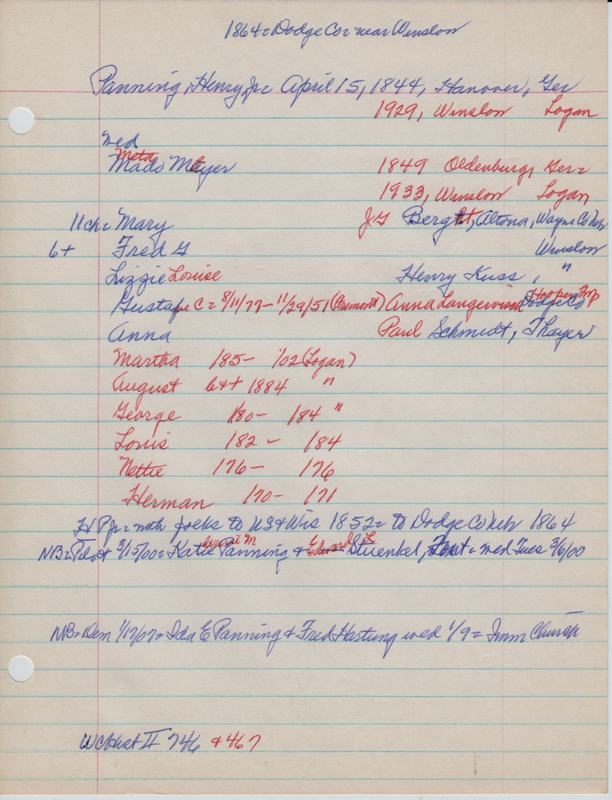 1864 = Dodge Co = near Winslow
Panning, Henry, Jr = April 15, 1844, Hanover, Ger
1929, Winslow Logan
wed
Meta
Mado Meyer 1849 Oldenburg, Ger =
1933, Winslow Logan
11ch = Mary JG Bergt, Altona, Wayne Co Neb
6+ Fred G Winslow
Lizzie Louise Henry Kuss, "
Gustave C = 8/11/77 - 11/29/51 (Fremont) Anna Langewisch Dodge Co Hooper Twp
Anna Paul Schmidt, Thayer
Martha 185 - '02 (Logan)
August b&+ 1884 "
George 180 - 184 "
Louis 182 - 184
Nettie 176 - 176
Herman 170 - 171
HP Jr = with folks to US & Wis 1852 = to Dodge Co Neb 1864
NB = Pilot 3/15/00 = Katie Panning & Edward L Stuenkel, = wed Tues 3/6/00
NB = Dem 1/17/07 = Ida E Panning & Fred Hartung wed 1/9 = Imm Church
WCHist II 746 & 467